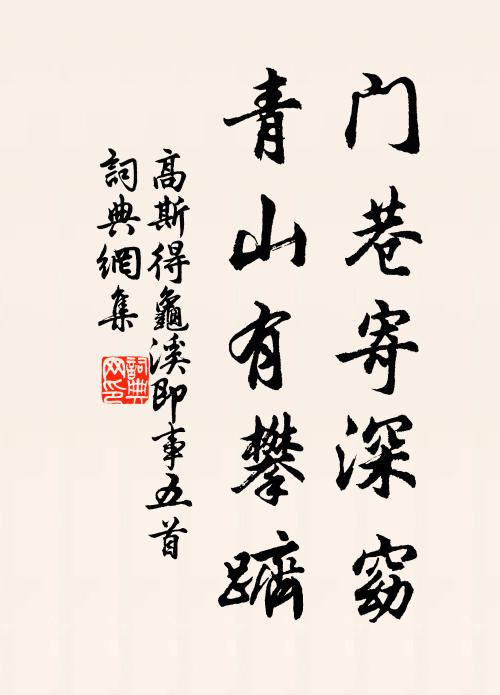 门巷寄深窈
青山有攀躋
高斯得龜溪即事五首
詞典網集
詞典
网印